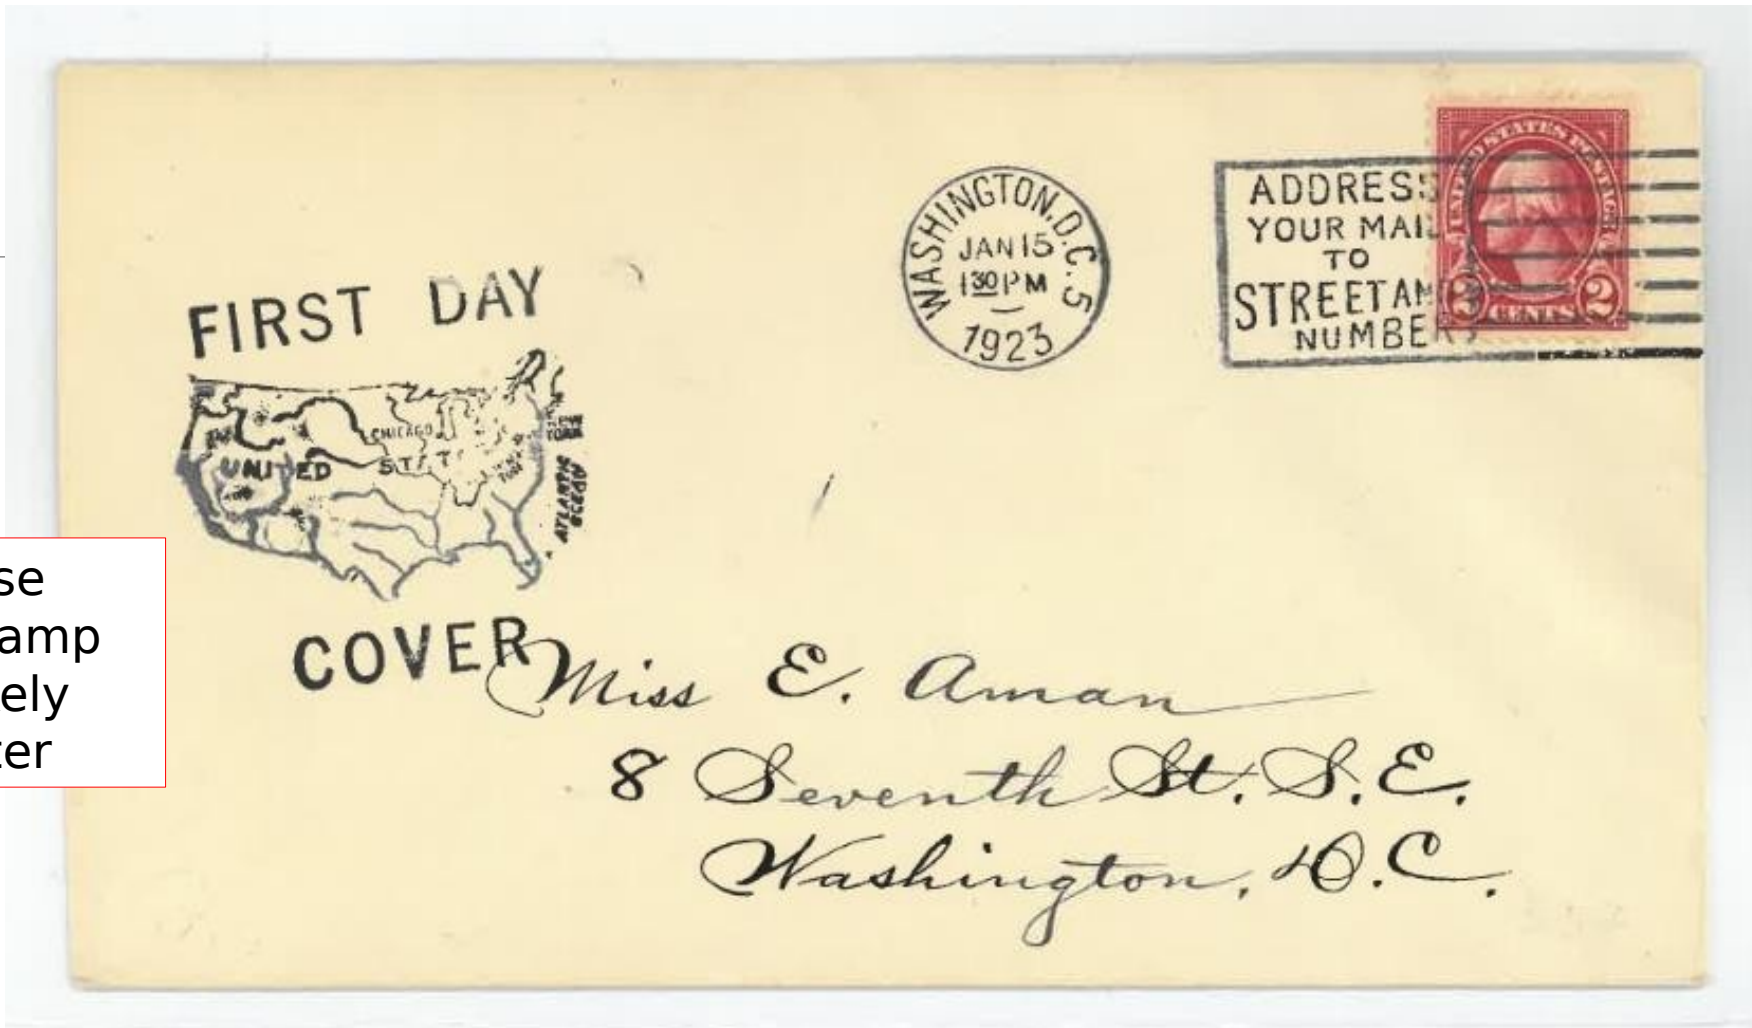 FIRST DAY
CHICAGO
UNITED STAT
ATLANTIC
OCEAN
COVER
WASHINGTON, D.C. 5
JAN 15
1 30 PM
1923
ADDRESS
YOUR MAIL
TO
STREET AND
NUMBER
UNITED STATES POSTAGE
2 CENTS 2
se
amp
ely
ter
Miss E. Aman
8 Seventh St. S.E.
Washington, D.C.